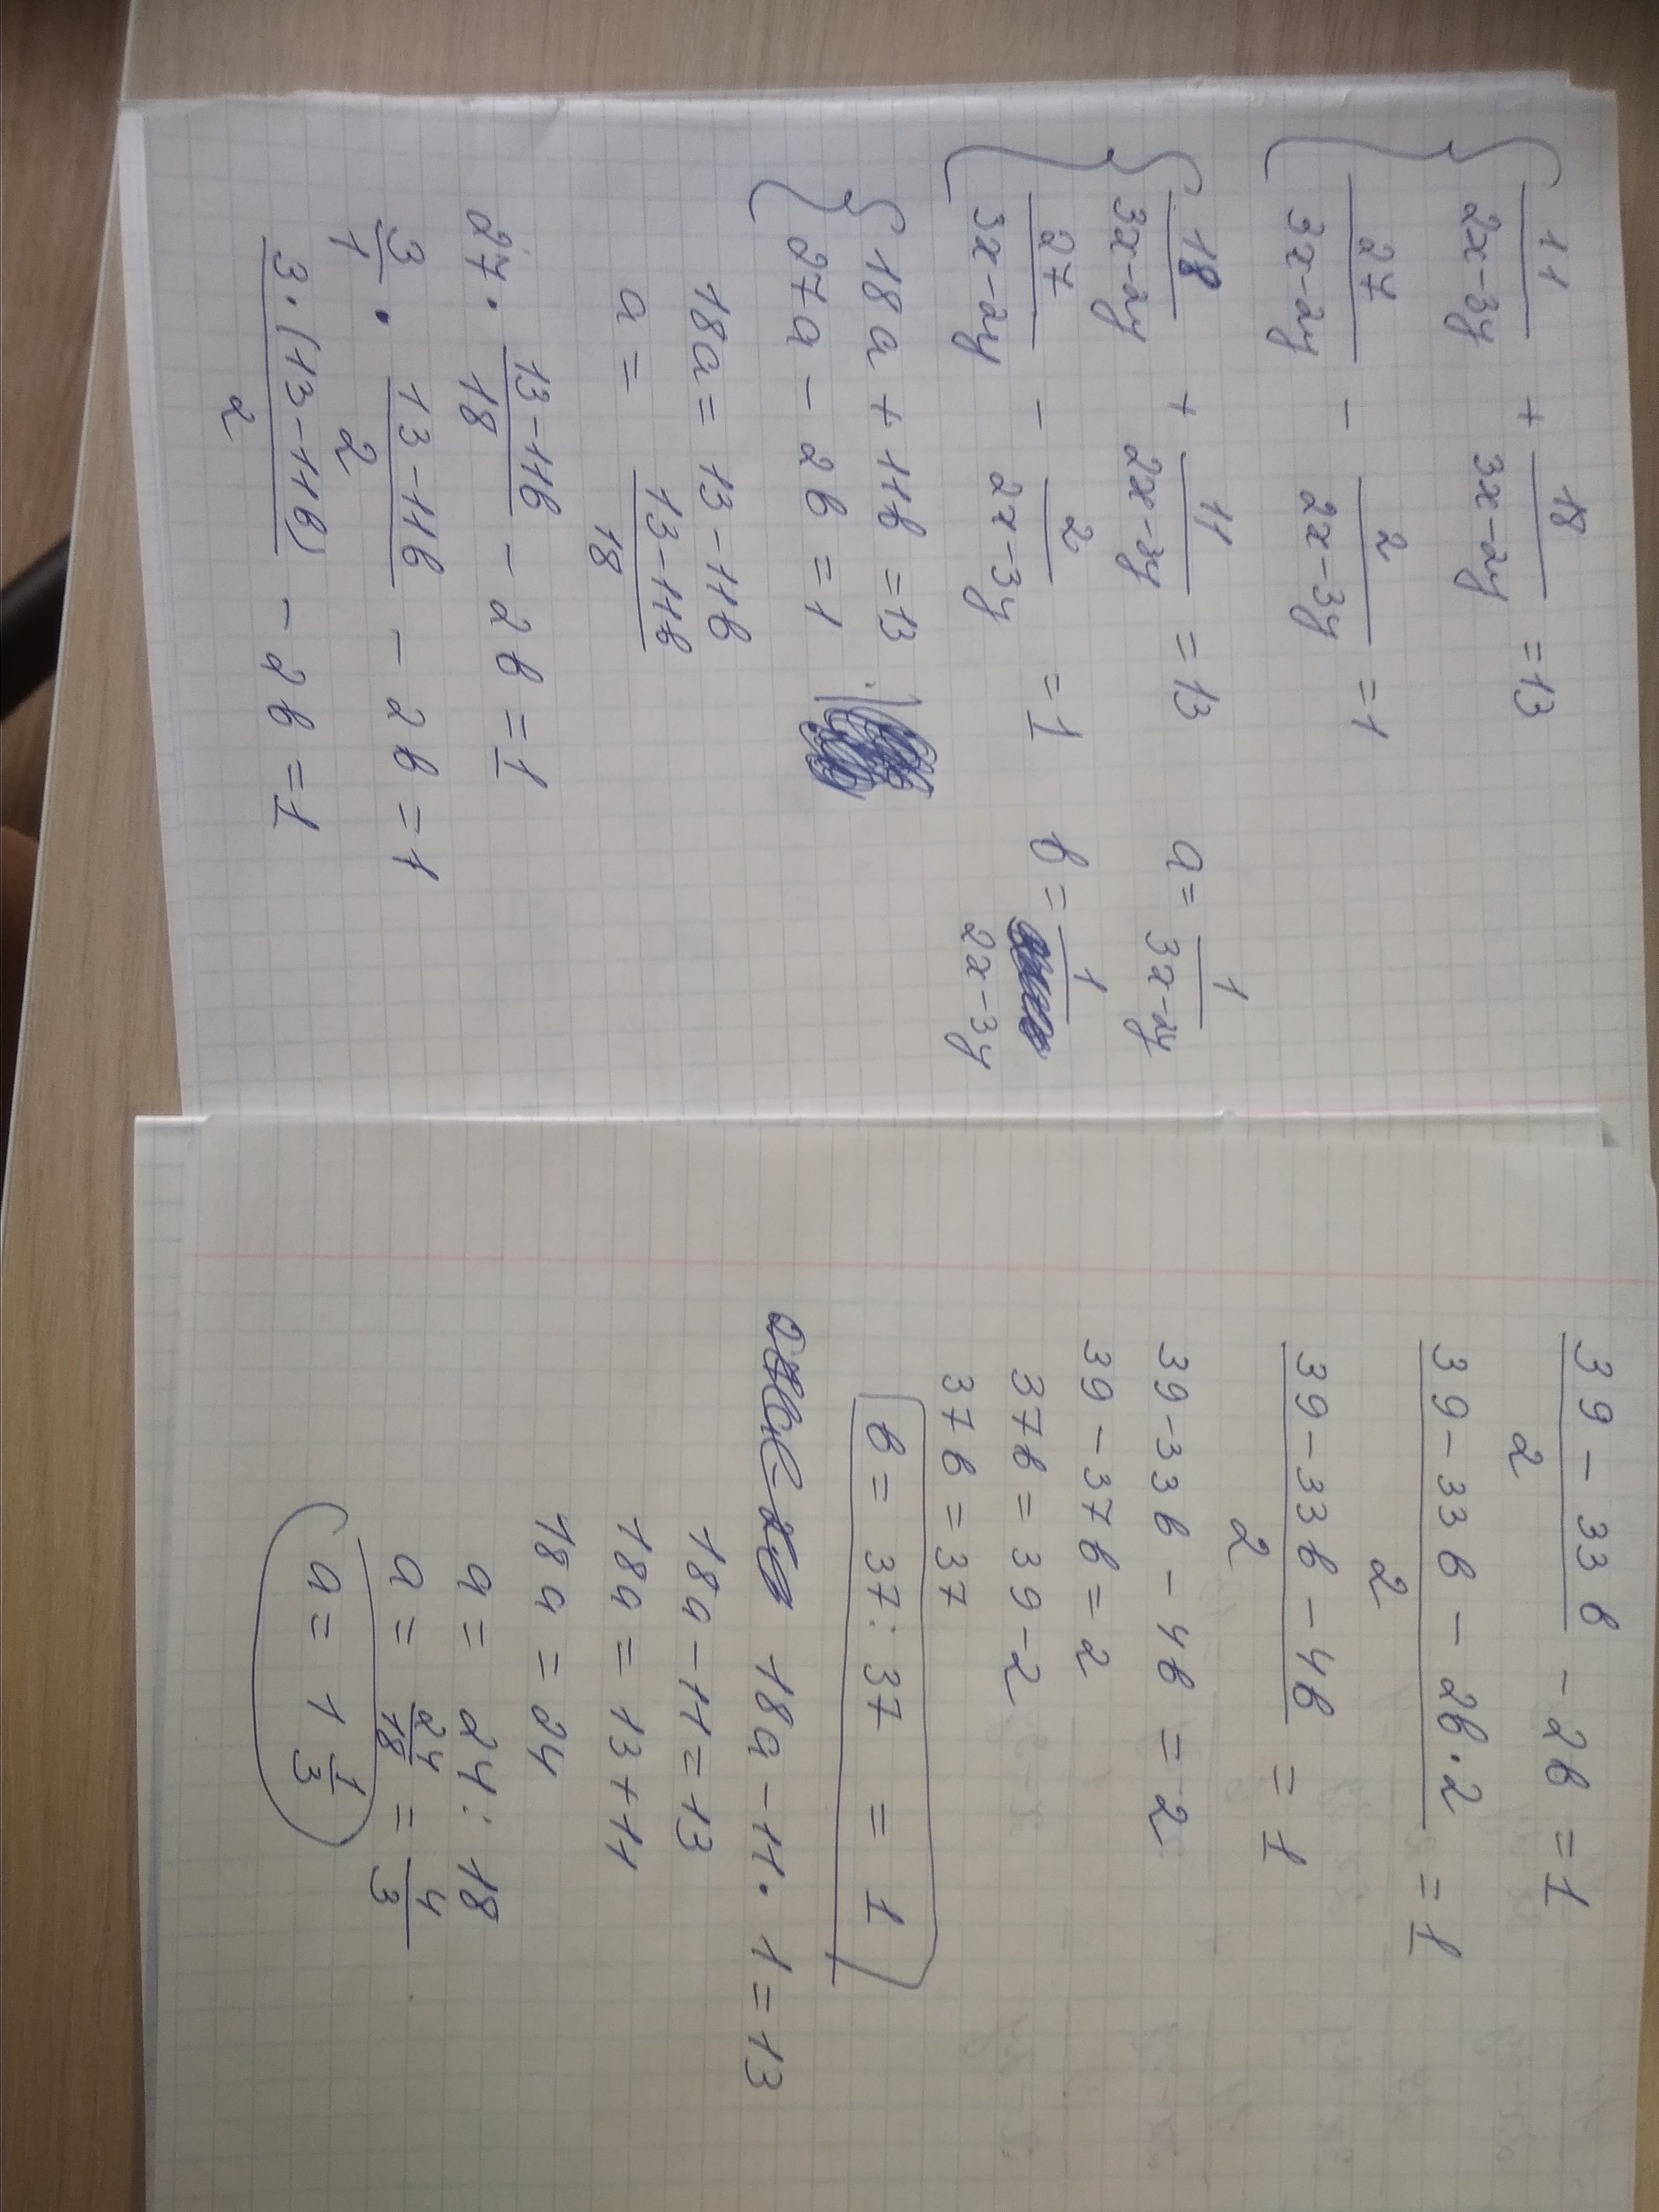 11/(2x-3y) + 18/(3x-2y) = 13
27/(3x-2y) - 2/(2x-3y) = 1
18/(3x-2y) + 11/(2x-3y) = 13 a = 1/(3x-2y)
27/(3x-2y) - 2/(2x-3y) = 1 в = 1/(2x-3y)
18a + 11в = 13
27a - 2в = 1
18a = 13 - 11в
a = (13-11в)/18
27 · (13-11в)/18 - 2в = 1
3/1 · (13-11в)/2 - 2в = 1
3·(13-11в)/2 - 2в = 1
(39-33в)/2 - 2в = 1
(39-33в-2в·2)/2 = 1
(39-33в-4в)/2 = 1
39-33в-4в = 2
39-37в = 2
37в = 39-2
37в = 37
в = 37:37 = 1
18a - 11·1 = 13
18a - 11 = 13
18a = 13+11
18a = 24
a = 24:18
a = 24/18 = 4/3
a = 1 1/3